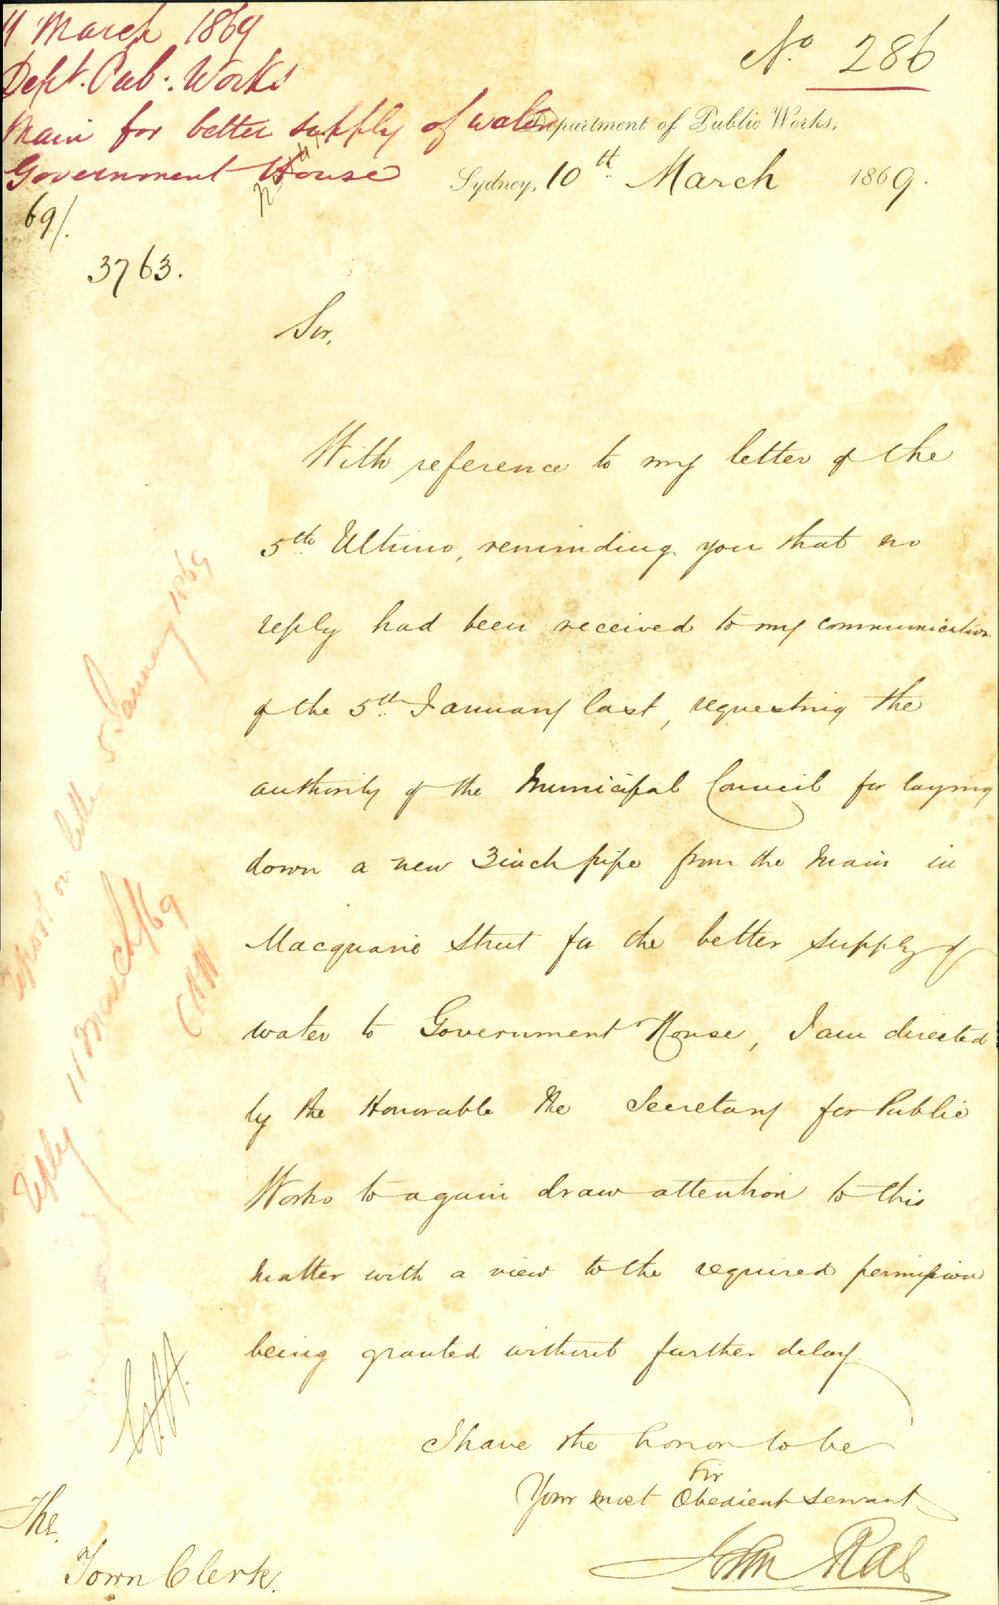 11 March 1869
Dept. Pub. Works
Main for better supply of water
Government House
No. 286
Department of Public Works,
Sydney, 10th March 1869.
69/.
3763.
Sir,
With reference to my letter of the
5th Ultimo, reminding you that no
reply had been received to my communication
of the 5th January last, requesting the
authority of the Municipal Council for laying
down a new 3 inch pipe from the Main in
Macquarie Street for the better supply of
water to Government House, I am directed
by the Honorable the Secretary for Public
Works to again draw attention to this
matter with a view to the required permission
being granted without further delay
I have the honor to be
Sir
Your most Obedient servant
John Rae
The
Town Clerk.
Report on letter 5 January 1869
Reply 11 March/69